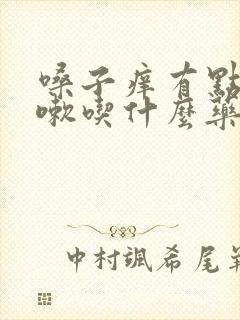 嗓子痒有點
嗽喫什麼藥
中村颯希尾